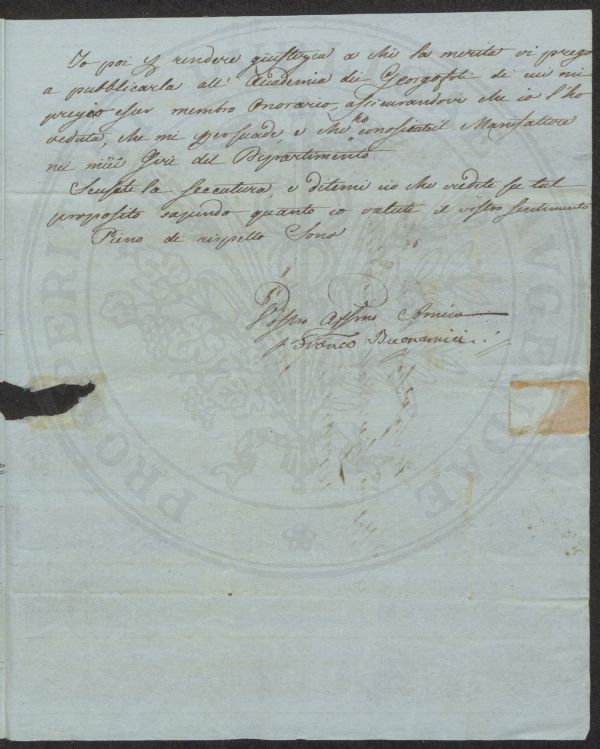 Io poi p rendere giustizia a chi la merita vi prego
a pubblicarla all' Accademia dei Georgofili di cui mi
pregio esser membro Onorario, assicurandovi che io l'ho
veduta, che mi persuade, e che ho conosciuto il Manifattore
nei miei Giri del Dipartimento.
Scusate la seccatura, e ditemi ciò che credete su tal
proposito sapendo quanto io valuti il vostro sentimento
Pieno di rispetto Sono
Vostro Affmo Amico
Franco Buonamici
PROSPERITATI AUGENDAE